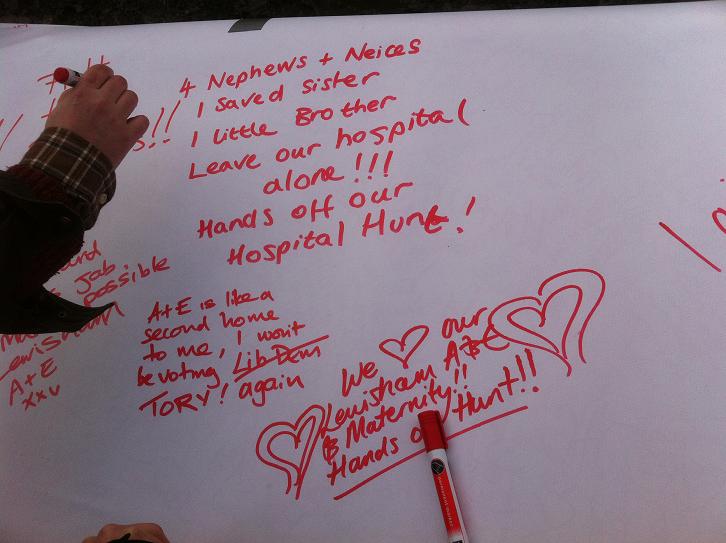 4 Nephews + Neices
1 saved sister
1 Little Brother
Leave our hospital
alone!!!
Hands off our
Hospital Hunt!
Job
possible
Lewisham
A+E
xxv
A+E is like a
second home
to me, I wont
be voting Lib Dem
TORY! again
We our
Lewisham A&E
& Maternity!!
Hands Hunt!!